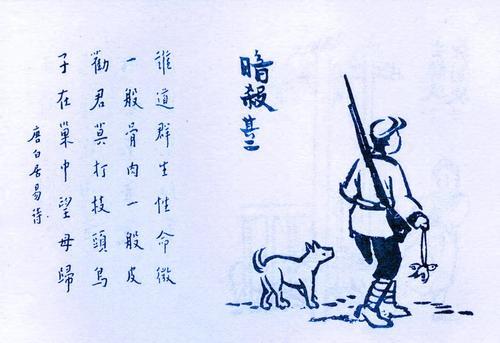 暗殺其二
誰道群生性命微
一般骨肉一般皮
勸君莫打枝頭鳥
子在巢中望母歸
唐白居易詩